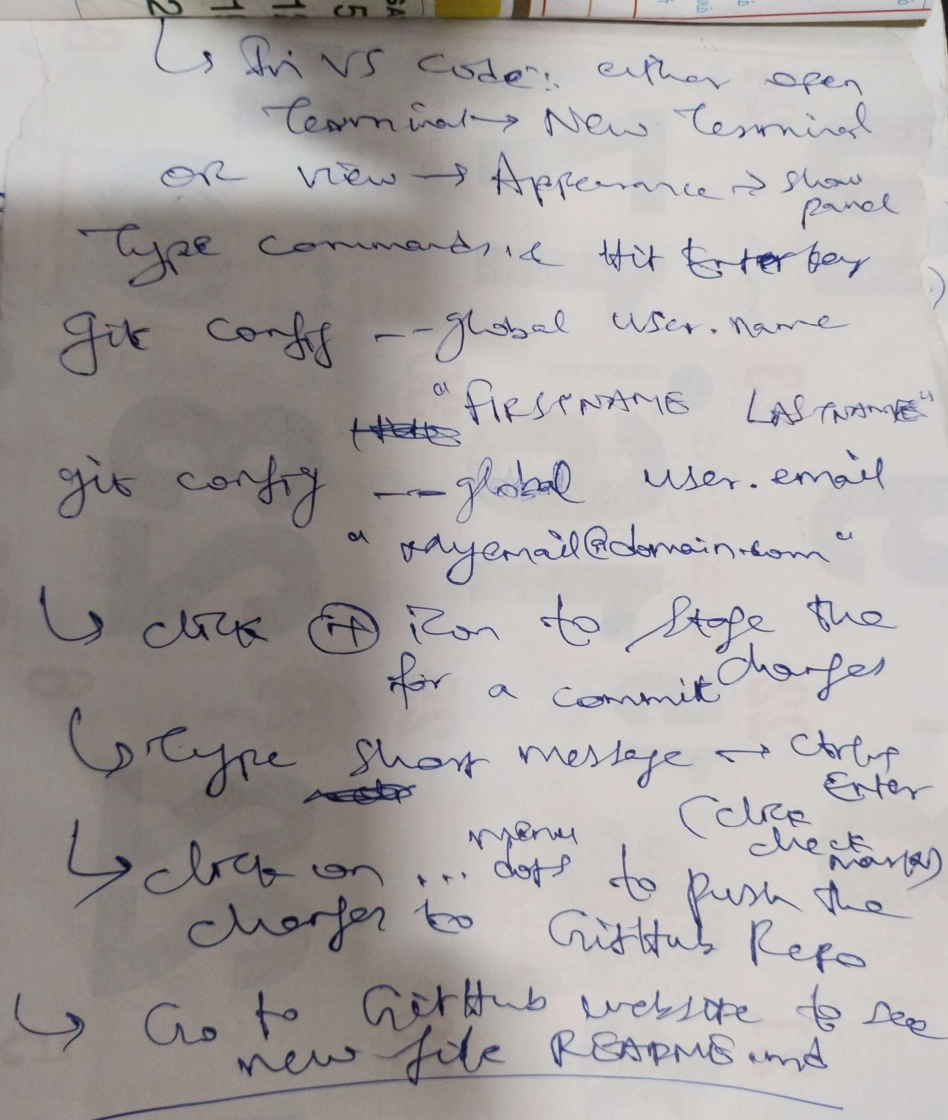 ↳ In VS Code: either open
Terminal → New Terminal
OR view → Appearance → show
panel
Type commands & Hit Enter key
git config --global user.name
"FIRSTNAME LASTNAME"
git config --global user.email
"myemail@domain.com"
↳ click + icon to stage the
changes
for a commit
↳ Type short message → Ctrl+
Enter
(click
check
mark)
menu
↳ click on ... dots to push the
changes to GitHub Repo
↳ Go to GitHub website to see
new file README.md